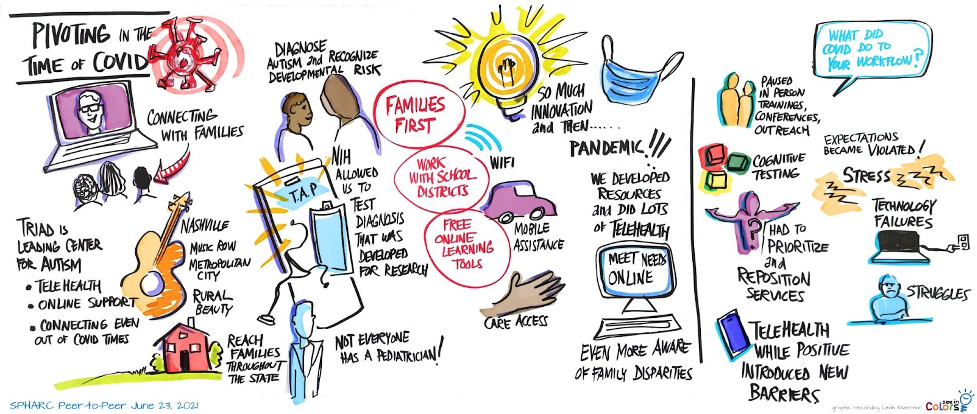 PIVOTING IN THE
TIME OF COVID
CONNECTING
WITH FAMILIES
TRIAD IS
LEADING CENTER
FOR AUTISM
• TELEHEALTH
• ONLINE SUPPORT
• CONNECTING EVEN
OUT OF COVID TIMES
NASHVILLE
MUSIC ROW
METROPOLITAN
CITY
RURAL
BEAUTY
REACH
FAMILIES
THROUGHOUT
THE STATE
DIAGNOSE
AUTISM and RECOGNIZE
DEVELOPMENTAL RISK
T.A.P
NIH
ALLOWED
US TO
TEST
DIAGNOSIS
THAT WAS
DEVELOPED
FOR RESEARCH
NOT EVERYONE
HAS A PEDIATRICIAN!
FAMILIES
FIRST
WORK
WITH SCHOOL
DISTRICTS
FREE
ONLINE
LEARNING
TOOLS
WIFI
MOBILE
ASSISTANCE
CARE ACCESS
SO MUCH
INNOVATION
and THEN......
PANDEMIC!!!
WE DEVELOPED
RESOURCES
and DID LOTS
of TELEHEALTH
MEET NEEDS
ONLINE
EVEN MORE AWARE
OF FAMILY DISPARITIES
WHAT DID
COVID DO TO
YOUR WORKFLOW?
PAUSED
IN PERSON
TRAININGS,
CONFERENCES,
OUTREACH
COGNITIVE
TESTING
?
HAD TO
PRIORITIZE
and
REPOSITION
SERVICES
TELEHEALTH
WHILE POSITIVE
INTRODUCED NEW
BARRIERS
EXPECTATIONS
BECAME VIOLATED!
STRESS
TECHNOLOGY
FAILURES
STRUGGLES
SPHARC Peer-to-Peer June 23, 2021
graphic recording Leah Silverman
see in
Colors